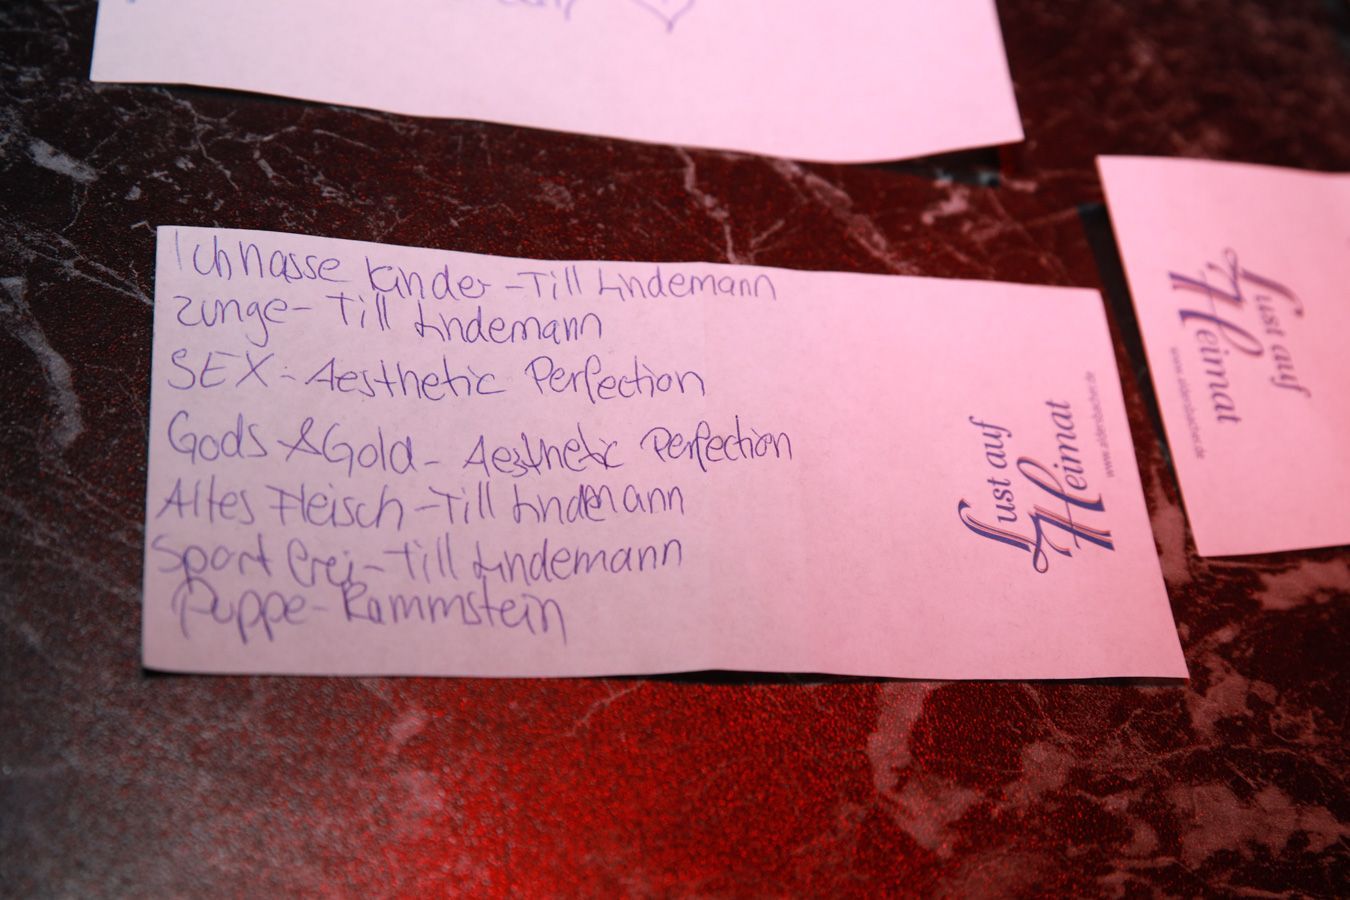 Ich hasse Kinder - Till Lindemann
Zunge - Till Lindemann
SEX - Aesthetic Perfection
Gods & Gold - Aesthetic Perfection
Altes Fleisch - Till Lindemann
Sport frei - Till Lindemann
Puppe - Rammstein
Lust auf
Heimat
www.aldersbacher.de
Lust auf
Heimat
www.aldersbacher.de